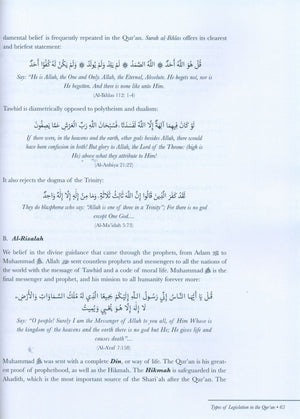 damental belief is frequently repeated in the Qur'an. Surah al-Ikhlas offers its clearest
and briefest statement:
قُلْ هُوَ اللَّهُ أَحَدٌ اللَّهُ الصَّمَدُ لَمْ يَلِدْ وَلَمْ يُولَدْ وَلَمْ يَكُنْ لَهُ كُفُوًا أَحَدٌ
Say: "He is Allah, the One and Only. Allah, the Eternal, Absolute. He begets not, nor is
He begotten. And there is none like unto Him.
(Al-Ikhlas 112: 1-4)
Tawhid is diametrically opposed to polytheism and dualism:
لَوْ كَانَ فِيهِمَا آلِهَةٌ إِلَّا اللَّهُ لَفَسَدَتَا فَسُبْحَانَ اللَّهِ رَبِّ الْعَرْشِ عَمَّا يَصِفُونَ
If there were, in the heavens and the earth, other gods besides Allah, there would
have been confusion in both! But glory is Allah, the Lord of the Throne: (high is
He) above what they attribute to Him!
(Al-Anbiya 21:22)
It also rejects the dogma of the Trinity:
لَقَدْ كَفَرَ الَّذِينَ قَالُوا إِنَّ اللَّهَ ثَالِثُ ثَلَاثَةٍ وَمَا مِنْ إِلَٰهٍ إِلَّا إِلَٰهٌ وَاحِدٌ
They do blaspheme who say: "Allah is one of three in a Trinity"; For there is no god
except One God....
(Al-Ma'idah 5:73)
B. Al-Risalah
We belief in the divine guidance that came through the prophets, from Adam to
Muhammad ﷺ. Allah sent countless prophets and messengers to all the nations of
the world with the message of Tawhid and a code of moral life. Muhammad ﷺ is the
final messenger and prophet, and his mission to all humanity forever more:
قُلْ يَا أَيُّهَا النَّاسُ إِنِّي رَسُولُ اللَّهِ إِلَيْكُمْ جَمِيعًا الَّذِي لَهُ مُلْكُ السَّمَاوَاتِ وَالْأَرْضِ
لَا إِلَٰهَ إِلَّا هُوَ يُحْيِي وَيُمِيتُ
Say: "O people! Surely I am the Messenger of Allah to you all, of Him Whose is
the kingdom of the heavens and the earth there is no god but He; He gives life and
causes death"...
(Al-A'raf 7:158)
Muhammad ﷺ was sent with a complete Din, or way of life. The Qur'an is his great-
est proof of prophethood, as well as the Hikmah. The Hikmah is safeguarded in the
Ahadith, which is the most important source of the Shari'ah after the Qur'an. The
Types of Legislation in the Qur'an • 63